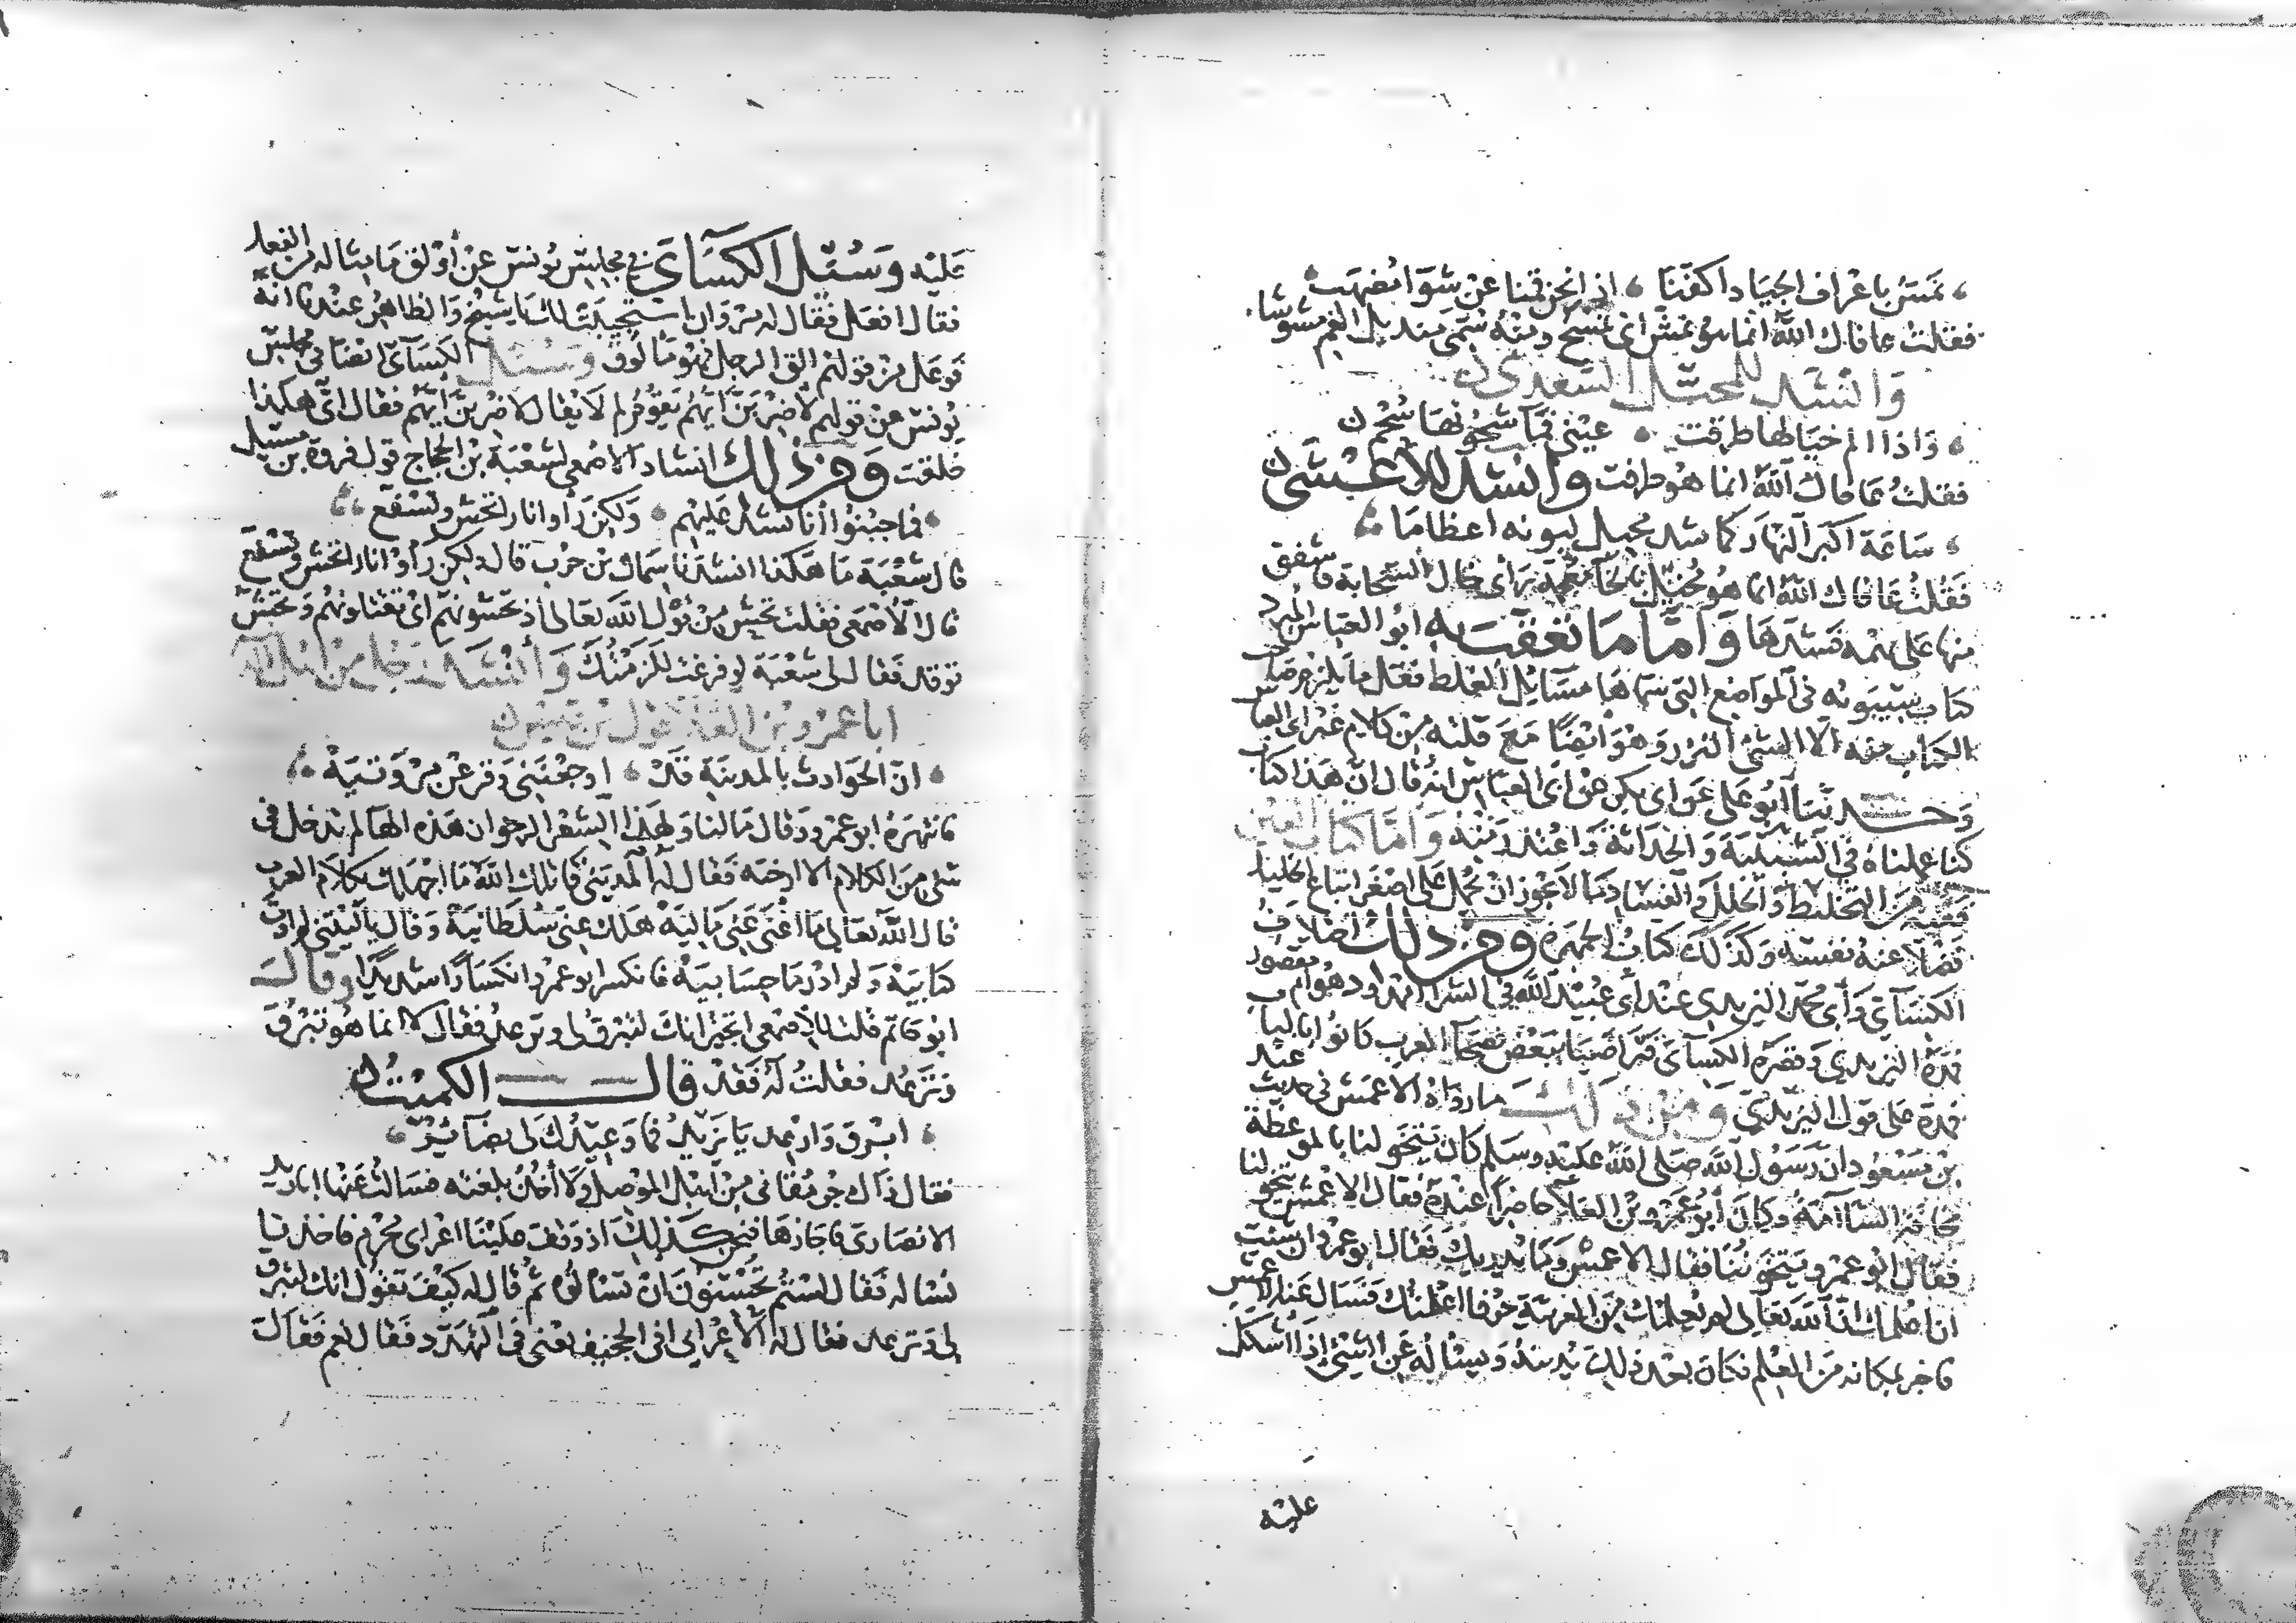 نمس باعراف الجياد اكفنا اذا نحن قمنا عن شواء مضهب
فقلت عافاك الله انما هو نمش اى نمسح ومنه سمى منديل الغمر مشوشا
وانشد للمخبل السعدى
واذا الم خيالها طرقت عينى فماء شجونها سجم
فقلت عافاك الله انما هو طرفت وانشد للاعشى
ساعة اكبر النهار كما شد محيل لبونه اعظاما
فقلت عافاك الله انما هو مخيل بالخاء معجمة رأى خال السحابة فاشفق
منها على بهمه فشدها واما ما تعقب به ابو العباس المبرد
كتاب سيبويه فى المواضع التى سماها مسائل الغلط فقل ما يلزم صاحب
الكتاب منه الا الشىء النزر وهو ايضا مع قلته من كلام غير ابى العباس
وحدثنا ابو على عن ابى بكر عن ابى العباس انه قال ان هذا كتاب
كنا عملناه فى الشبيبة والحداثة واعتذر منه واما كتاب العين
ففيه من التخليط والخلل والفساد ما لا يجوز ان يحمل على اصغر اتباع الخليل
فضلا عنه نفسه وكذلك كتاب الجمهرة ومن ذلك اختلاف
الكسائى وابى محمد اليزيدى عند ابى عبيد الله فى الشراء اممدود هو ام مقصور
فمده اليزيدى وقصره الكسائى فتراضيا ببعض فصحاء العرب كانوا بالباب
فمده على قول اليزيدى ومن ذلك ما رواه الاعمش فى حديث عبد
بن مسعود ان رسول الله صلى الله عليه وسلم كان يتخولنا بالموعظة
مخافة السآمة وكان ابو عمرو بن العلاء حاضرا عنده فقال الاعمش يتخولنا
فقال ابو عمرو يتخوننا فقال الاعمش وما يدريك فقال ابو عمرو ان شئت
ان اعلمك ان الله تعالى لم يعلمك من العربية حرفا اعلمتك فسأل عنه الاعمش
فاخبر بمكانه من العلم فكان بعد ذلك يدنيه ويسأله عن الشىء اذا اشكل
عليه
عليه وسئل الكسائى فى مجلس يونس عن اولق ما مثاله من الفعل
فقال افعل فقال له مروان استحييت لك يا شيخ والظاهر عندنا انه
فوعل من قولهم الق الرجل فهو مألوق وسئل الكسائى ايضا فى مجلس
يونس عن قولهم لاضربن ايهم يقوم لم لا يقال لاضربن ايهم فقال اى هكذا
خلقت ومن ذلك انشاد الاصمعى لشعبة بن الحجاج قول فروة بن مسيك
فما جبنوا أنا نشد عليهم ولكن رأوا نارا تحش وتسفع
قال شعبة ما هكذا انشدنا سماك بن حرب قال ولكن رأوا نارا تحش وتسفع
قال الاصمعى فقلت تحش من قول الله تعالى اذ تحسونهم اى تقتلونهم وتحش
توقد فقال لى شعبة لو فرغت للزمتك وانشد رجل من اهل المدينة
ابا عمرو بن العلاء قول بن قيس
ان الحوادث بالمدينة قد اوجعننى وقرعن مروتيه
فانتهره ابو عمرو وقال ما لنا ولهذا الشعر الرخو ان هذه الها لم تدخل فى
شىء من الكلام الا ارخته فقال له المدينى قاتلك الله ما اجهلك بكلام العرب
قال الله تعالى ما اغنى عنى ماليه هلك عنى سلطانيه وقال يا ليتنى لم اوت
كتابيه ولم ادر ما حسابيه فانكسر ابو عمرو انكسارا شديدا وقال
ابو حاتم قلت للاصمعى اتجيز انك لتبرق لى وترعد فقال لا انما هو تبرق
وترعد فقلت له فقد قال الكميت
ابرق وارعد يا يزيد فما وعيدك لى بضائر
فقال ذاك جرمقانى من اهل الموصل ولا آخذ بلغته فسألت عنها ابا زيد
الانصارى فاجازها فنحن كذلك اذ وقف علينا اعرابى محرم فاخذنا
نسأله فقال لستم تحسنون ان تسألوه ثم قال له كيف تقول انك لتبرق
لى وترعد فقال له الاعرابى افى الجخيف يعنى فى التهدد فقال نعم فقال